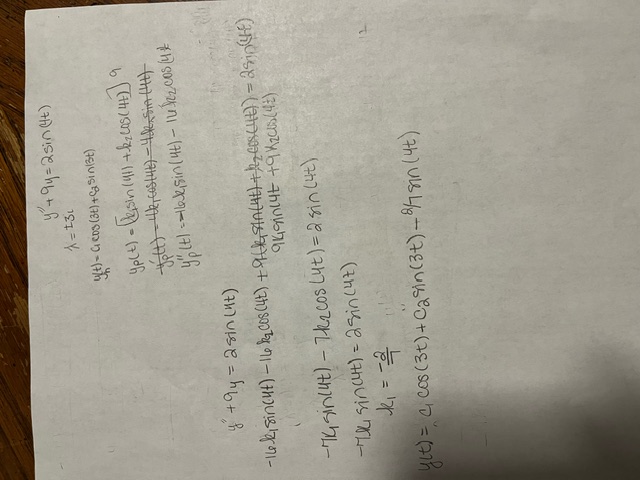 y'' + 9y = 2sin(4t)
λ = ±3i
y_h(t) = c₁cos(3t) + c₂sin(3t)
y_p(t) = [k₁sin(4t) + k₂cos(4t)] 9
y_p'(t) = 4k₁cos(4t) - 4k₂sin(4t)
y_p''(t) = -16k₁sin(4t) - 16k₂cos(4t)
y'' + 9y = 2sin(4t)
-16k₁sin(4t) - 16k₂cos(4t) + 9(k₁sin(4t) + k₂cos(4t)) = 2sin(4t)
9k₁sin(4t + 9k₂cos(4t)
-7k₁sin(4t) - 7k₂cos(4t) = 2sin(4t)
-7k₁sin(4t) = 2sin(4t)
k₁ = -2/7
y(t) = c₁cos(3t) + c₂sin(3t) - 2/7 sin(4t)